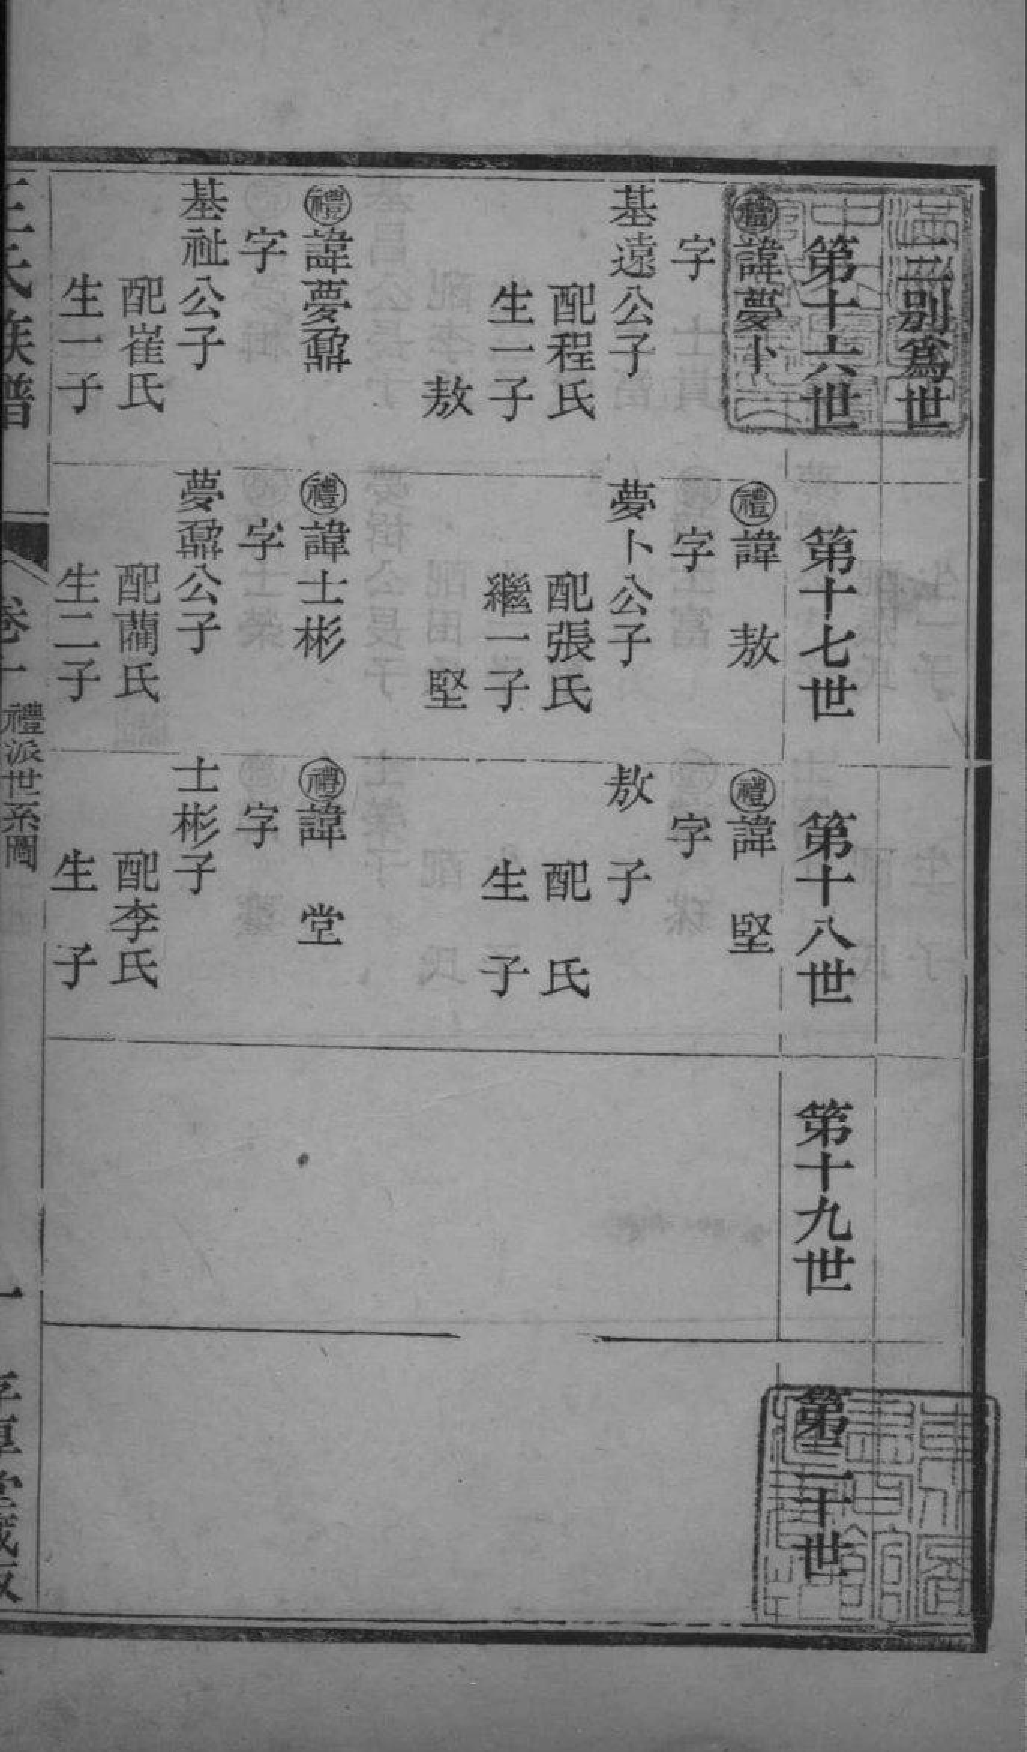 二別爲世
第十六世
第十七世
第十八世
第十九世
第二十世
禮諱夢卜
字
基遠公子
配程氏
生一子
敖
禮諱 敖
字
夢卜公子
配張氏
繼一子
堅
禮諱 堅
字
敖 子
配 氏
生 子
禮諱夢鼐
字
基祉公子
配崔氏
生一子
禮諱士彬
字
夢鼐公子
配藺氏
生二子
禮諱 堂
字
士彬子
配李氏
生 子
王氏族譜
卷十
禮派世系圖
一